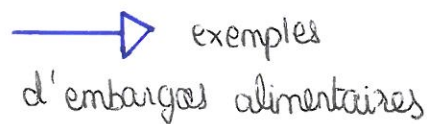 exemples
d'embargos alimentaires